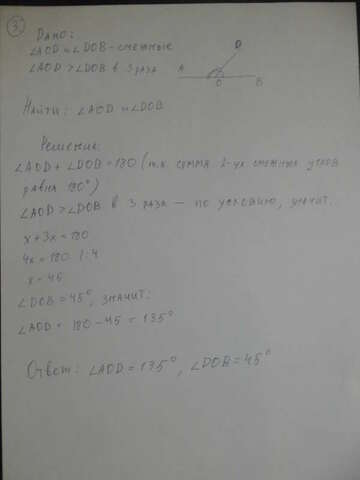 3.
Дано:
∠AOD и ∠DOB - смежные
∠AOD > ∠DOB в 3 раза
D
A O B
Найти: ∠AOD и ∠DOB
Решение:
∠AOD + ∠DOB = 180 (т.к. сумма 2-ух смежных углов
равна 180°)
∠AOD > ∠DOB в 3 раза — по условию, значит:
x + 3x = 180
4x = 180 | : 4
x = 45
∠DOB = 45°, значит:
∠AOD = 180 - 45 = 135°
Ответ: ∠AOD = 135°, ∠DOB = 45°